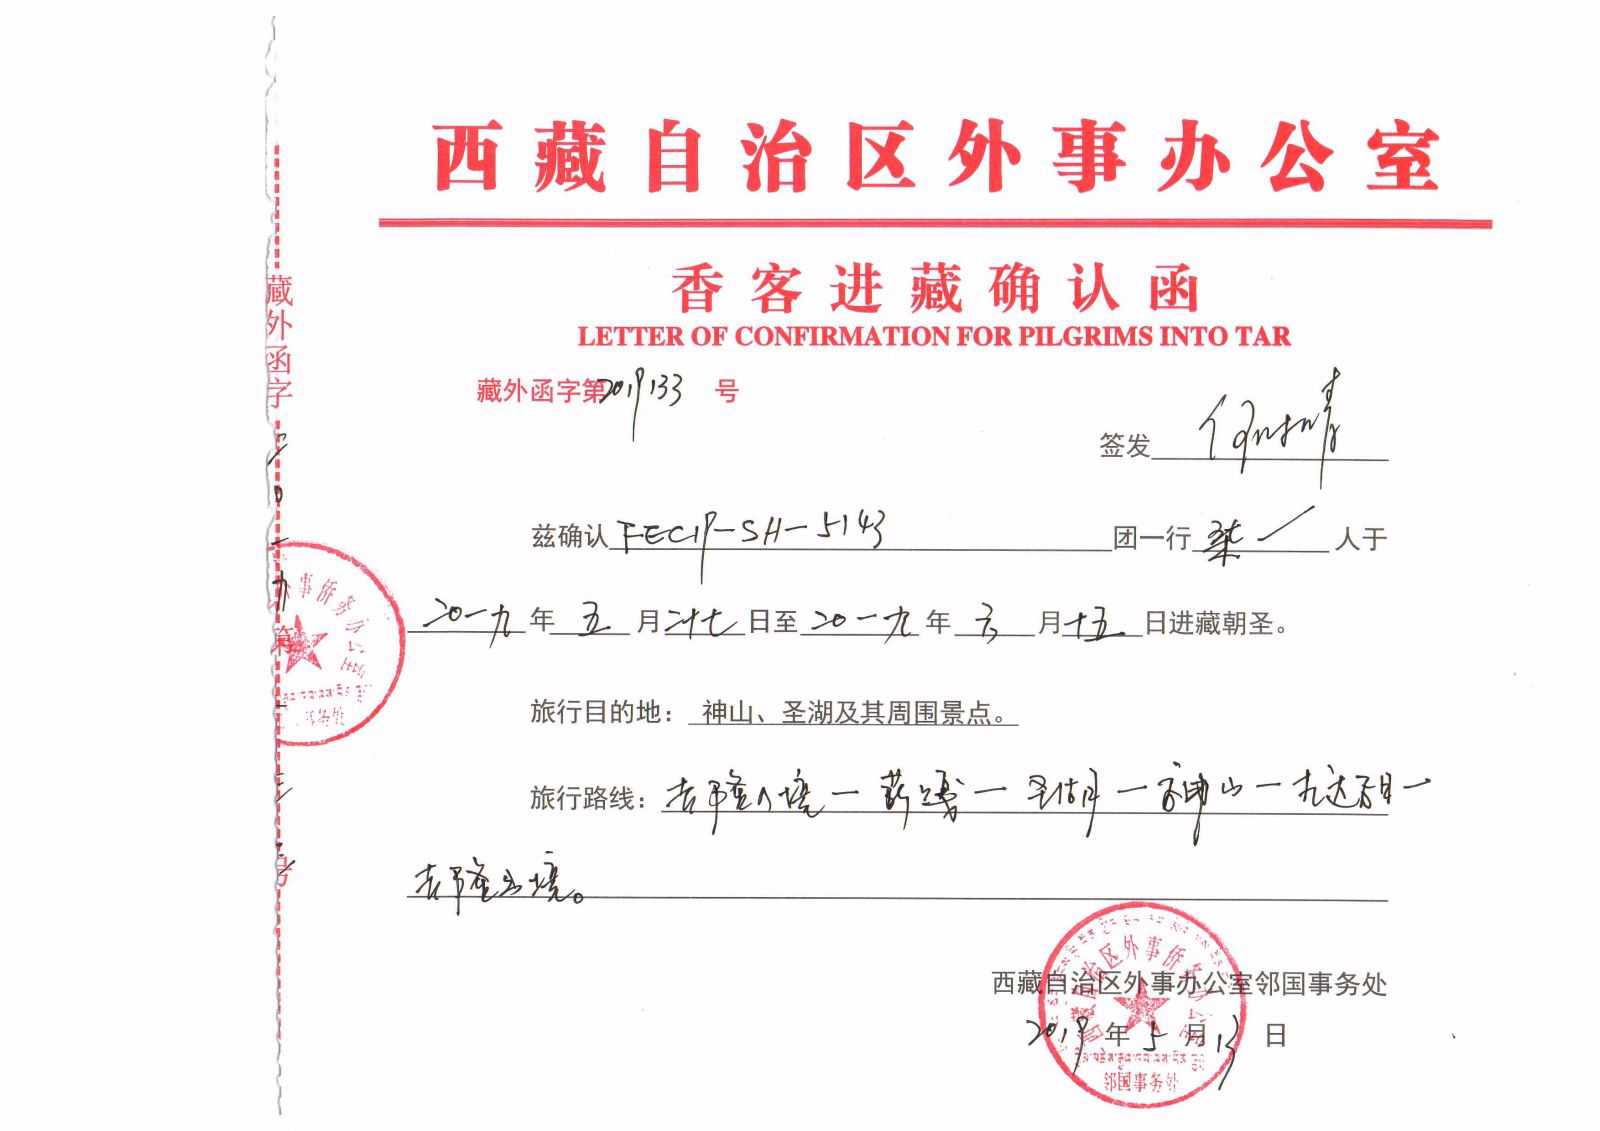 西藏自治区外事办公室
香客进藏确认函
LETTER OF CONFIRMATION FOR PILGRIMS INTO TAR
藏外函字第2019133 号
签发
兹确认FECIP-SH-5143团一行柒人于
二0一九年五月二十七日至二0一九年六月十五日进藏朝圣。
旅行目的地：神山、圣湖及其周围景点。
旅行路线：吉隆入境一萨嘎一圣湖一神山一九达一
吉隆出境。
西藏自治区外事办公室邻国事务处
2019年5月13日
藏外函字二0一九第一三三号
西藏自治区外事侨务办公室
邻国事务处
事侨务办公室